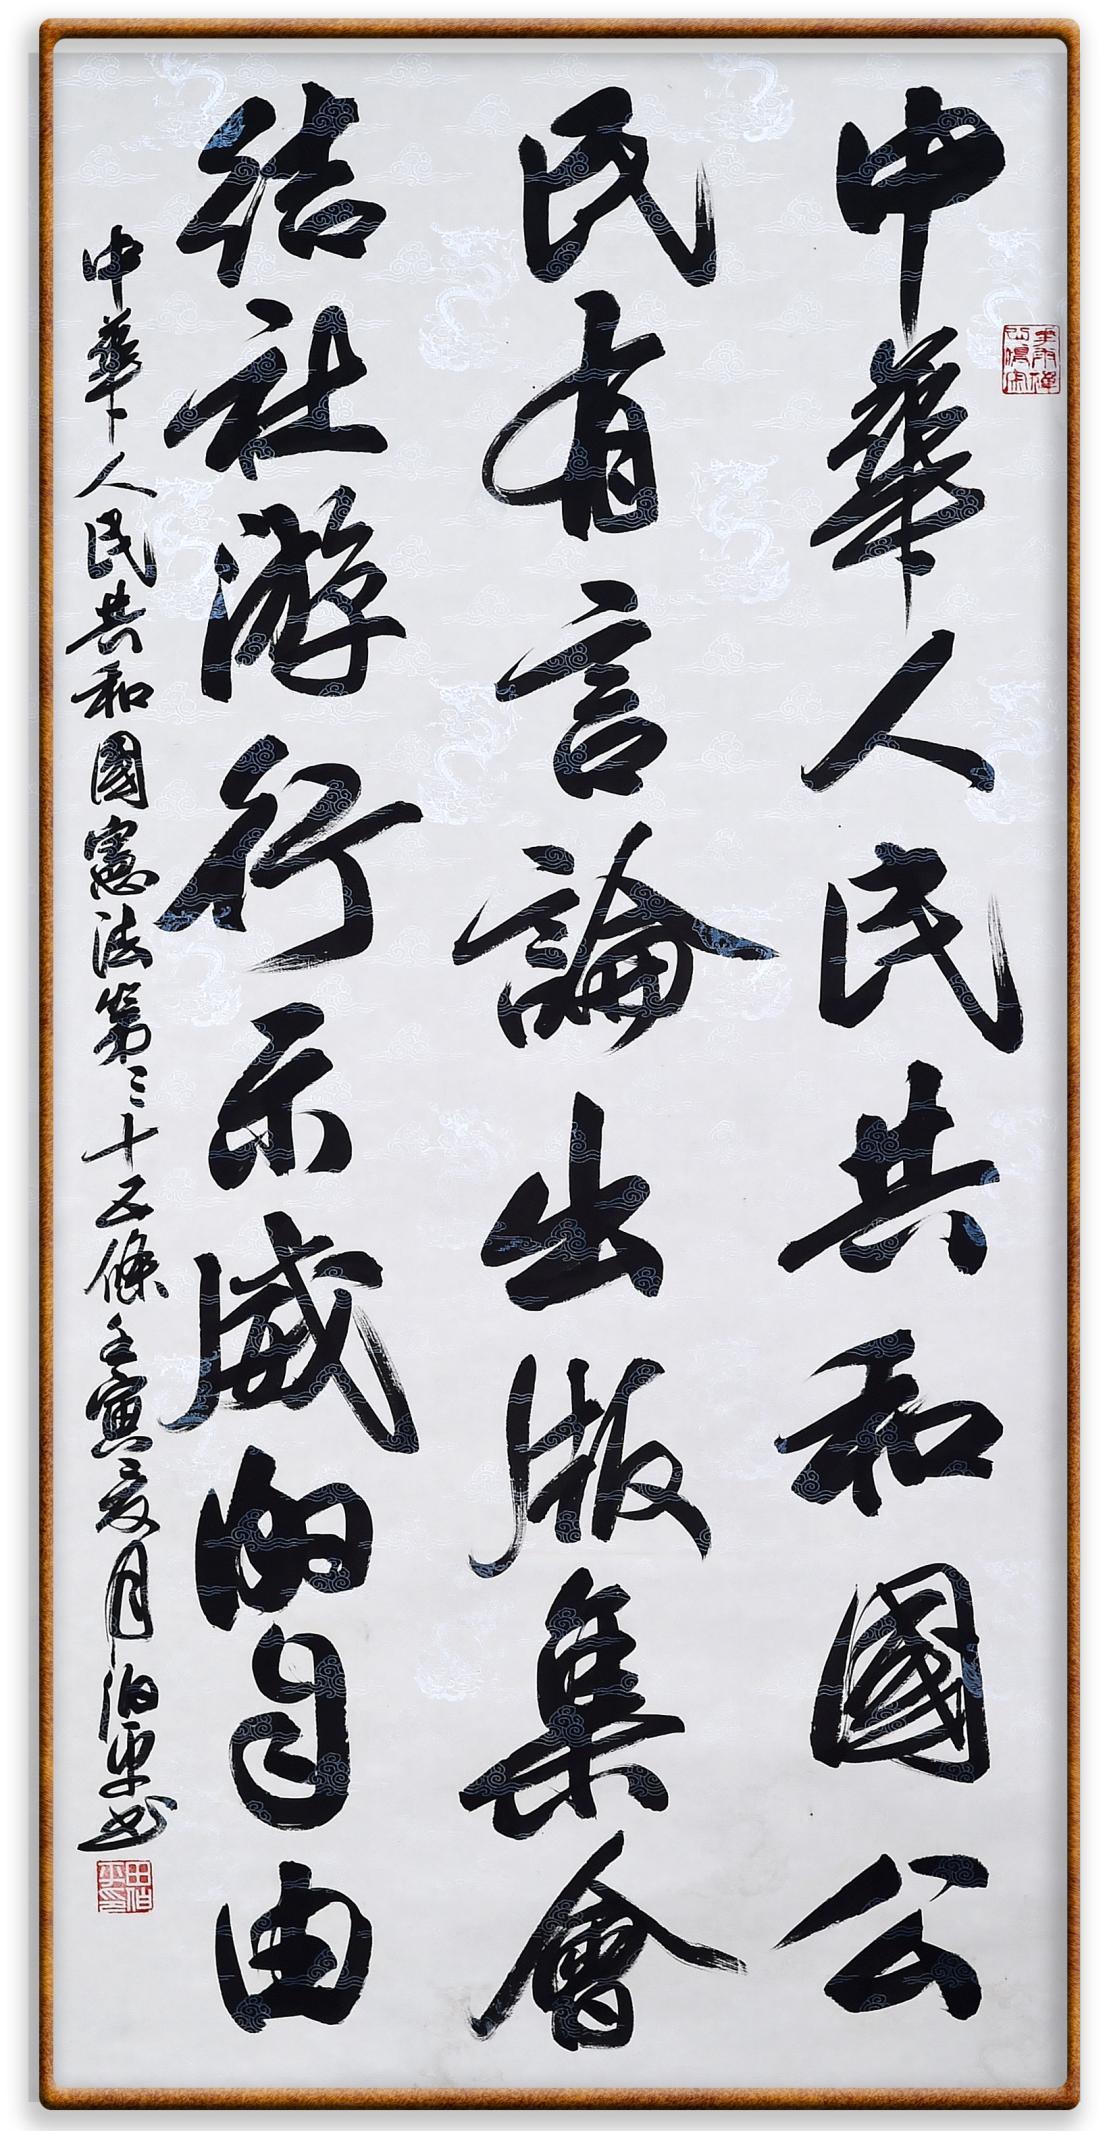 中華人民共和國公
民有言論出版集會
結社游行示威的自由
中華人民共和國憲法第三十五條壬寅夏月伯平书
田伯平印